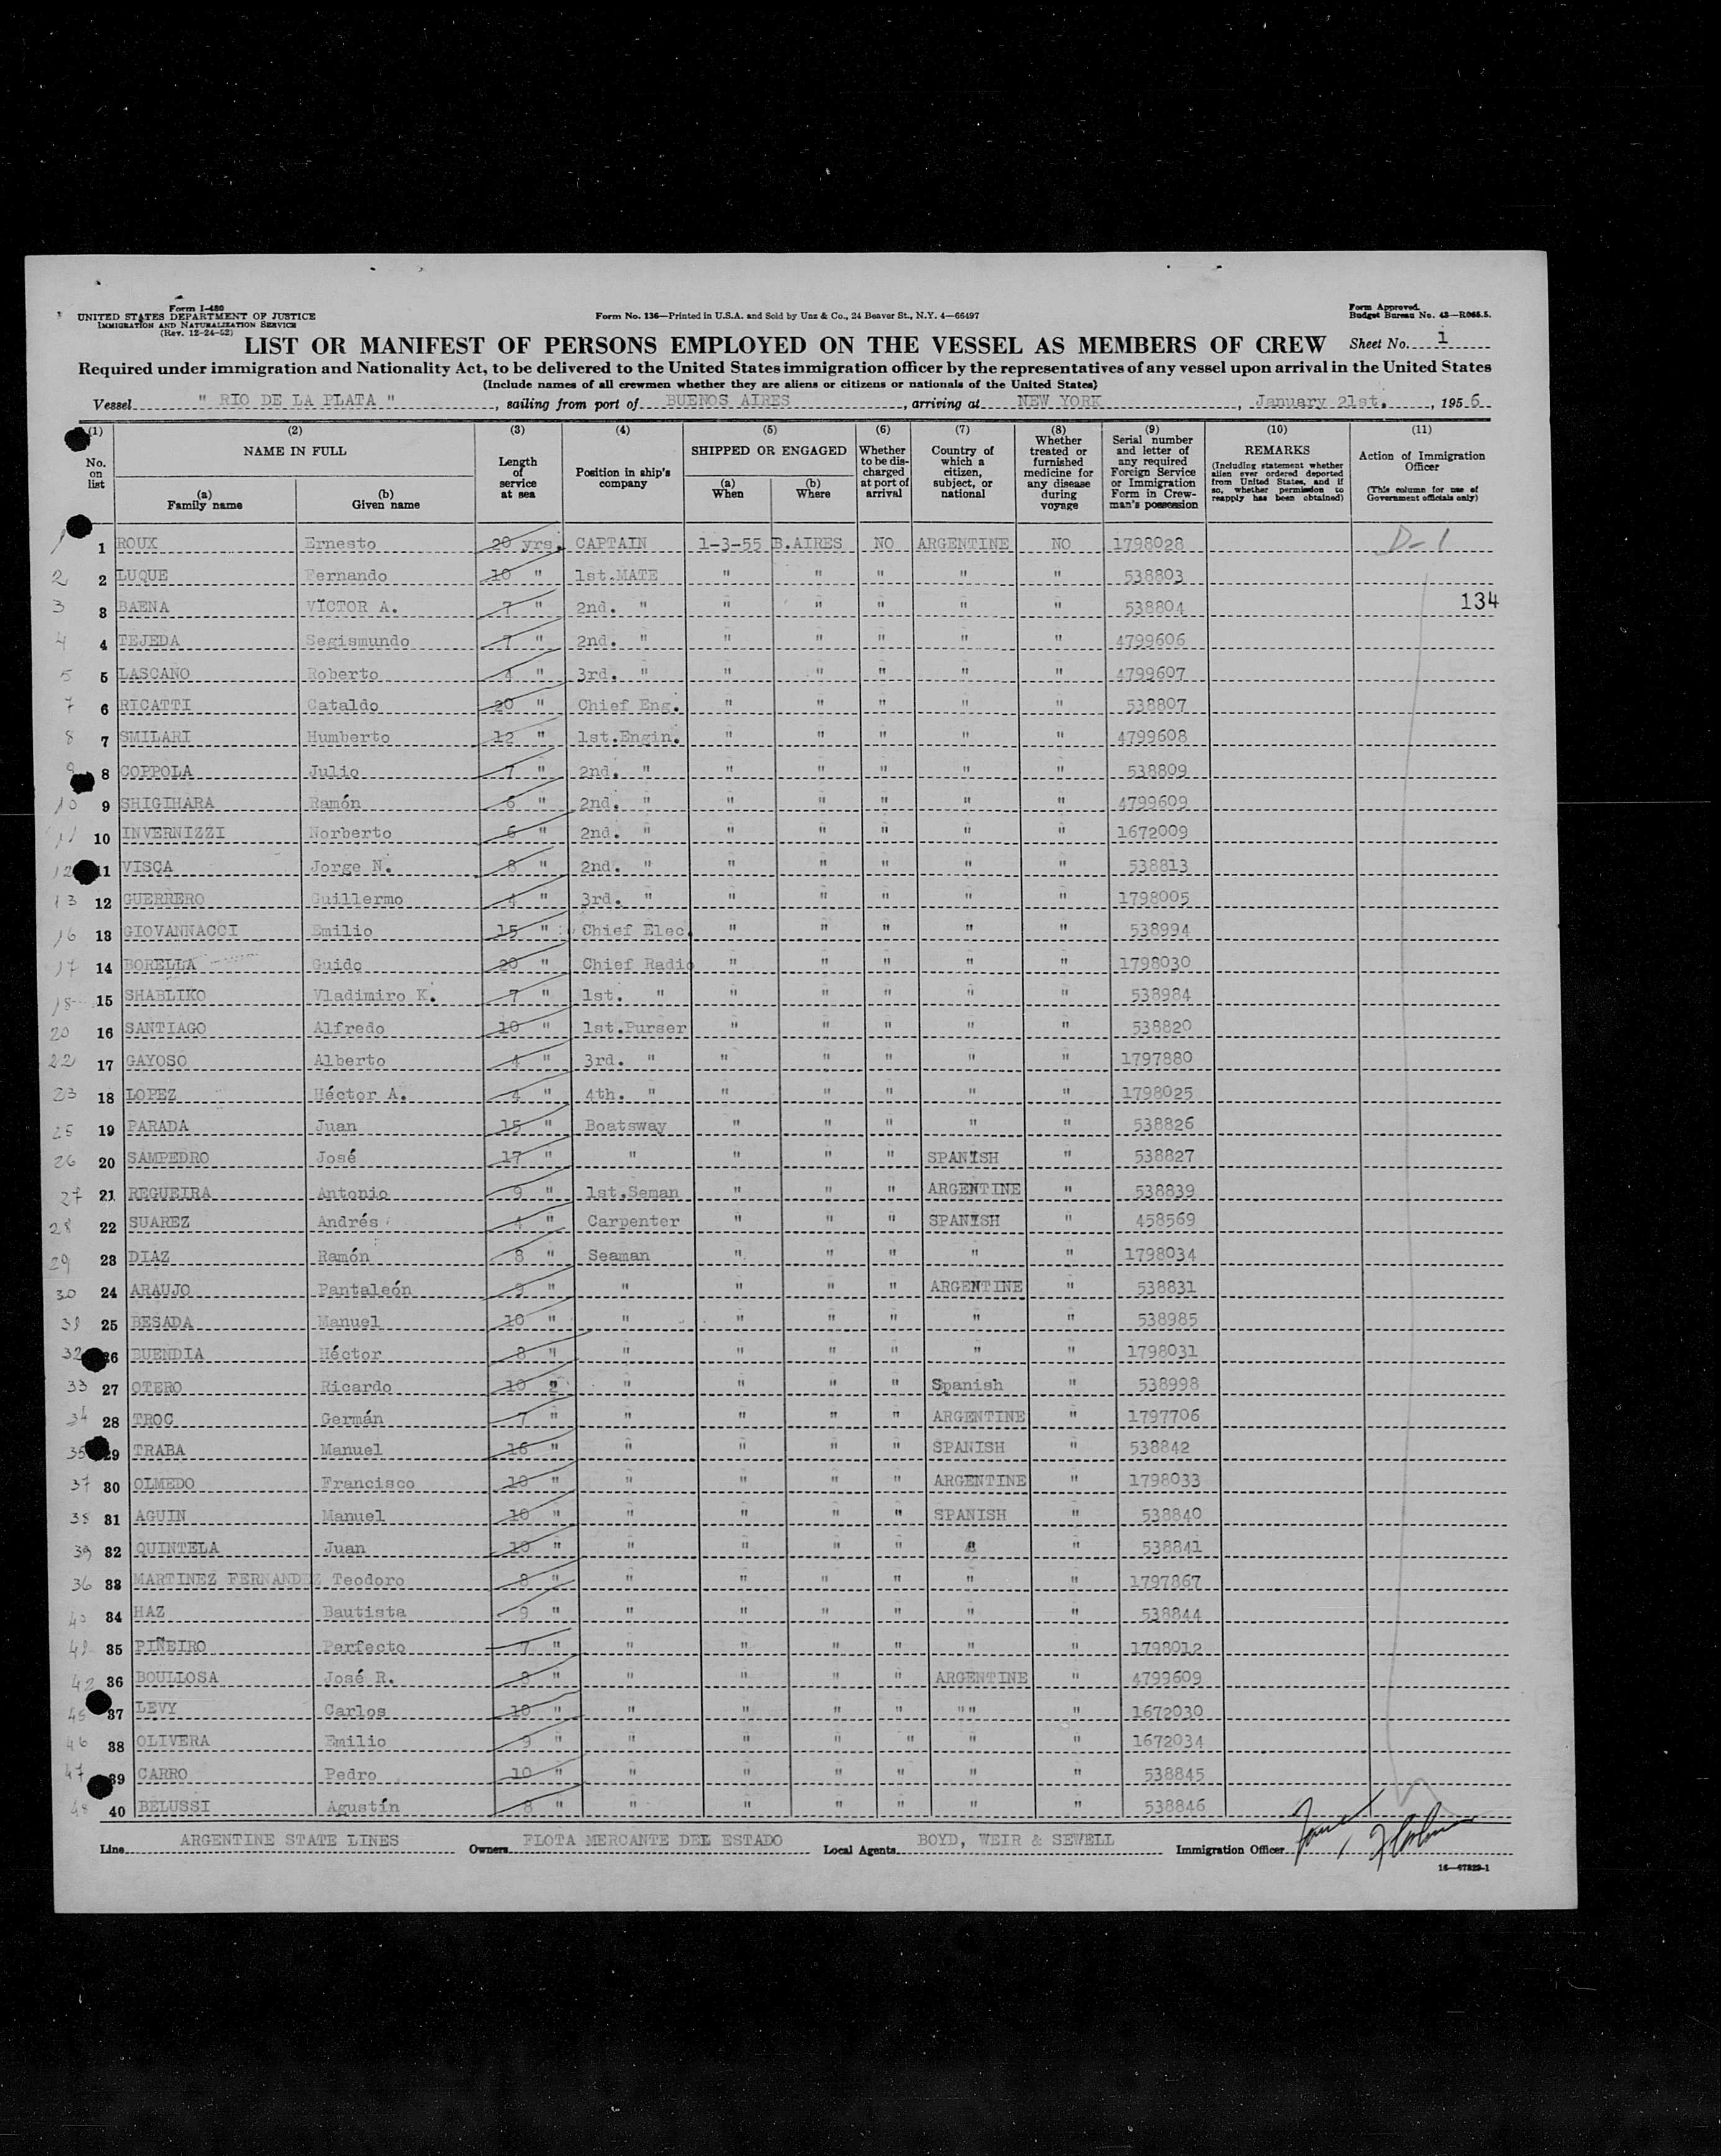 Form I-480
UNITED STATES DEPARTMENT OF JUSTICE
IMMIGRATION AND NATURALIZATION SERVICE
(Rev. 12-24-52)
Form No. 136—Printed in U.S.A. and Sold by Unz & Co., 24 Beaver St., N.Y. 4—66497
Form Approved.
Budget Bureau No. 43—R065.5.
LIST OR MANIFEST OF PERSONS EMPLOYED ON THE VESSEL AS MEMBERS OF CREW Sheet No. 1
Required under immigration and Nationality Act, to be delivered to the United States immigration officer by the representatives of any vessel upon arrival in the United States
(Include names of all crewmen whether they are aliens or citizens or nationals of the United States)
Vessel " RIO DE LA PLATA ", sailing from port of BUENOS AIRES, arriving at NEW YORK, January 21st., 1956
(1) No. on list
(2) NAME IN FULL
(a) Family name
(b) Given name
(3) Length of service at sea
(4) Position in ship's company
(5) SHIPPED OR ENGAGED
(a) When
(b) Where
(6) Whether to be discharged at port of arrival
(7) Country of which a citizen, subject, or national
(8) Whether treated or furnished medicine for any disease during voyage
(9) Serial number and letter of any required Foreign Service or Immigration Form in Crewman's possession
(10) REMARKS (Including statement whether alien ever ordered deported from United States, and if so, whether permission to reapply has been obtained)
(11) Action of Immigration Officer (This column for use of Government officials only)
1 1 ROUX Ernesto 20 yrs. CAPTAIN 1-3-55 B.AIRES NO ARGENTINE NO 1798028 D-1
2 2 LUQUE Fernando 10 " 1st.MATE " " " " " 538803
3 3 BAENA VICTOR A. 7 " 2nd. " " " " " " 538804 134
4 4 TEJEDA Segismundo 7 " 2nd. " " " " " " 4799606
5 5 LASCANO Roberto 4 " 3rd. " " " " " " 4799607
7 6 RICATTI Cataldo 20 " Chief Eng. " " " " " 538807
8 7 SMILARI Humberto 12 " 1st.Engin. " " " " " 4799608
9 8 COPPOLA Julio 7 " 2nd. " " " " " " 538809
10 9 SHIGIHARA Ramón 6 " 2nd. " " " " " " 4799609
11 10 INVERNIZZI Norberto 6 " 2nd. " " " " " " 1672009
12 11 VISCA Jorge N. 8 " 2nd. " " " " " " 538813
13 12 GUERRERO Guillermo 4 " 3rd. " " " " " " 1798005
16 13 GIOVANNACCI Emilio 15 " Chief Elec. " " " " " 538994
17 14 BORELLA Guido 20 " Chief Radio " " " " " 1798030
18 15 SHABLIKO Vladimiro K. 7 " 1st. " " " " " " 538984
20 16 SANTIAGO Alfredo 10 " 1st.Purser " " " " " 538820
22 17 GAYOSO Alberto 4 " 3rd. " " " " " " 1797880
23 18 LOPEZ Héctor A. 4 " 4th. " " " " " " 1798025
25 19 PARADA Juan 15 " Boatsway " " " " " 538826
26 20 SAMPEDRO José 17 " " " " " SPANISH " 538827
27 21 REGUEIRA Antonio 9 " 1st.Seman " " " ARGENTINE " 538839
28 22 SUAREZ Andrés 4 " Carpenter " " " SPANISH " 458569
29 23 DIAZ Ramón 8 " Seaman " " " " " 1798034
30 24 ARAUJO Pantaleón 9 " " " " " ARGENTINE " 538831
31 25 BESADA Manuel 10 " " " " " " " 538985
32 26 BUENDIA Héctor 8 " " " " " " " 1798031
33 27 OTERO Ricardo 10 2 " " " " Spanish " 538998
34 28 TROC Germán 7 " " " " " ARGENTINE " 1797706
35 29 TRABA Manuel 16 " " " " " SPANISH " 538842
37 30 OLMEDO Francisco 10 " " " " " ARGENTINE " 1798033
38 31 AGUIN Manuel 10 " " " " " SPANISH " 538840
39 32 QUINTELA Juan 10 " " " " " " " 538841
36 33 MARTINEZ FERNANDEZ Teodoro 8 " " " " " " " 1797867
40 34 HAZ Bautista 9 " " " " " " " 538844
41 35 PIÑEIRO Perfecto 7 " " " " " " " 1798012
42 36 BOULLOSA José R. 8 " " " " " ARGENTINE " 4799609
45 37 LEVY Carlos 10 " " " " " "" " 1672030
46 38 OLIVERA Emilio 9 " " " " " " " 1672034
47 39 CARRO Pedro 10 " " " " " " " 538845
48 40 BELUSSI Agustín 8 " " " " " " " 538846
Line ARGENTINE STATE LINES Owners FLOTA MERCANTE DEL ESTADO Local Agents BOYD, WEIR & SEWELL Immigration Officer
16—67829-1